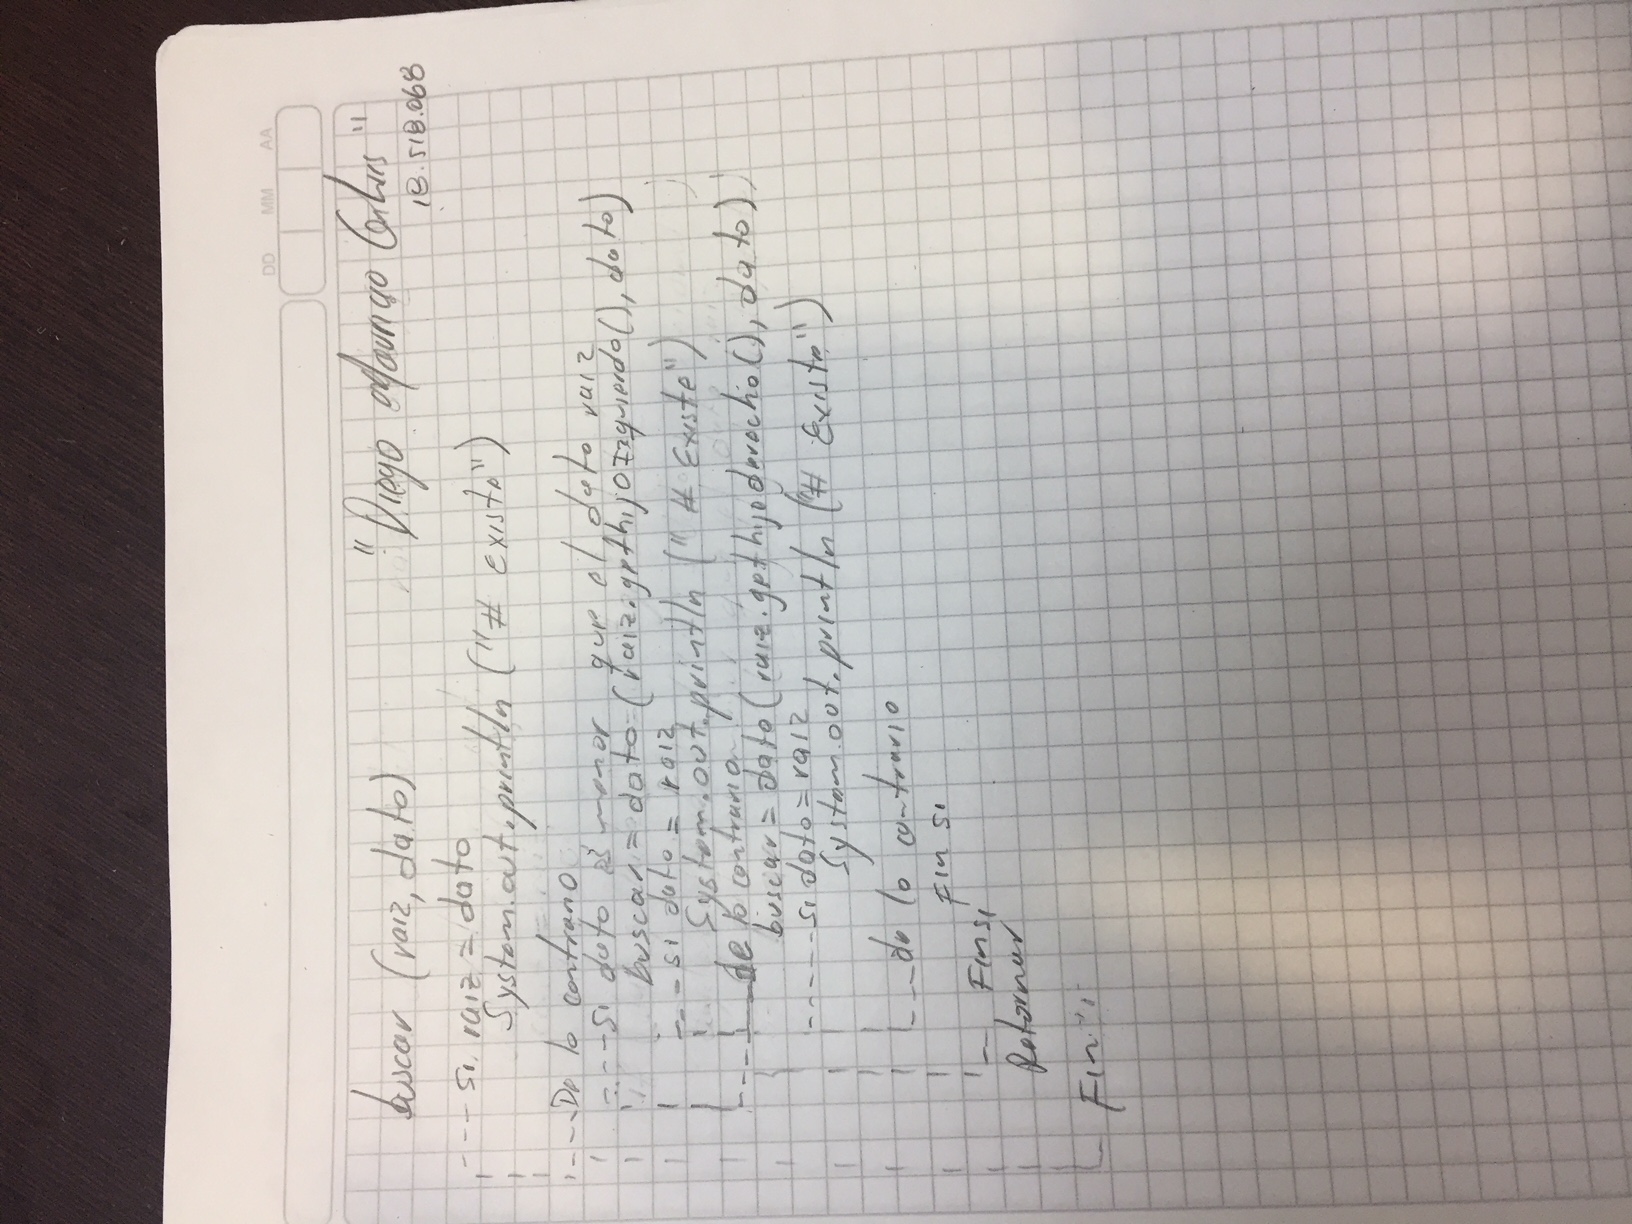 DD MM AA
buscar (raiz, dato)
"Diego
18.518.068
si raiz = dato
System.out.println ("# Existe")
De lo contrario
si dato es menor que el dato raiz
buscar = dato (raiz.gethijoIzquierdo(), dato)
si dato = raiz
System.out.println (" # Existe")
de lo contrario
buscar = dato (raiz.gethijoderecho(), dato)
si dato = raiz
System.out.println ("# Existe")
de lo contrario
Fin si
Finsi
Retornar
Fin